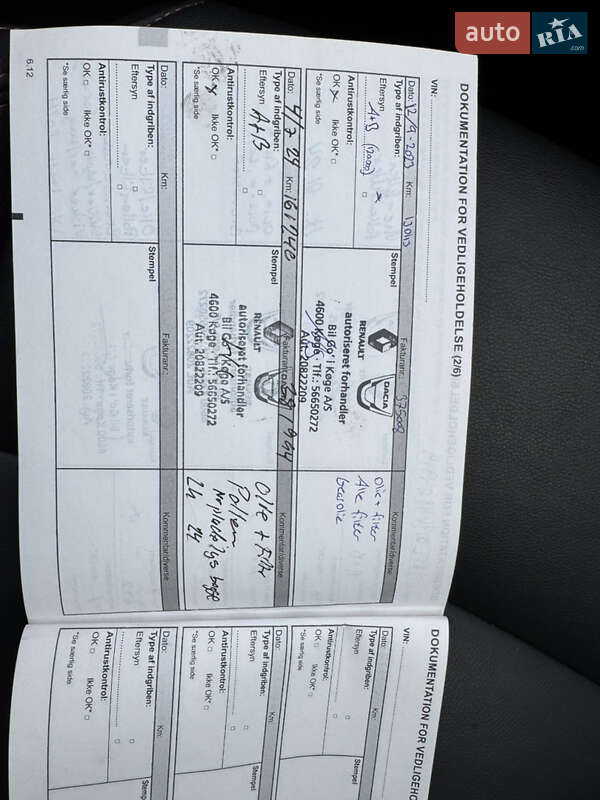 auto RIA .com
DOKUMENTATION FOR VEDLIGEHOLDELSE (2/6)
VIN:
Dato: 12/9-2023 Km: Fakturanr.: Kommentar/diverse
Type af indgriben: Stempel
Eftersyn A+B
Antirustkontrol:
OK x Ikke OK*
*Se særlig side
RENAULT DACIA
autoriseret forhandler
Bil Go' i Køge A/S
4600 Køge · Tlf.: 56650272
Aut. 20822209
Olie + filter
Dato: 4/7 24 Km: 161740 Fakturanr. Kommentar/diverse
Type af indgriben: Stempel
Eftersyn A+B
Antirustkontrol:
OK x Ikke OK*
*Se særlig side
RENAULT
autoriseret forhandler
Bil Go' i Køge A/S
4600 Køge · Tlf.: 56650272
Aut. 20822209
Olie + Filter
Pollen
Dato: Km: Fakturanr.: Kommentar/diverse
Type af indgriben: Stempel
Eftersyn
Antirustkontrol:
OK Ikke OK*
*Se særlig side
6.12
DOKUMENTATION FOR VEDLIGEH
VIN:
Dato: Km:
Type af indgriben: Stempel
Eftersyn
Antirustkontrol:
OK Ikke OK*
*Se særlig side
Dato: Km:
Type af indgriben: Stempel
Eftersyn
Antirustkontrol:
OK Ikke OK*
*Se særlig side
Dato: Km:
Type af indgriben: Stempel
Eftersyn
Antirustkontrol:
OK Ikke OK*
*Se særlig side